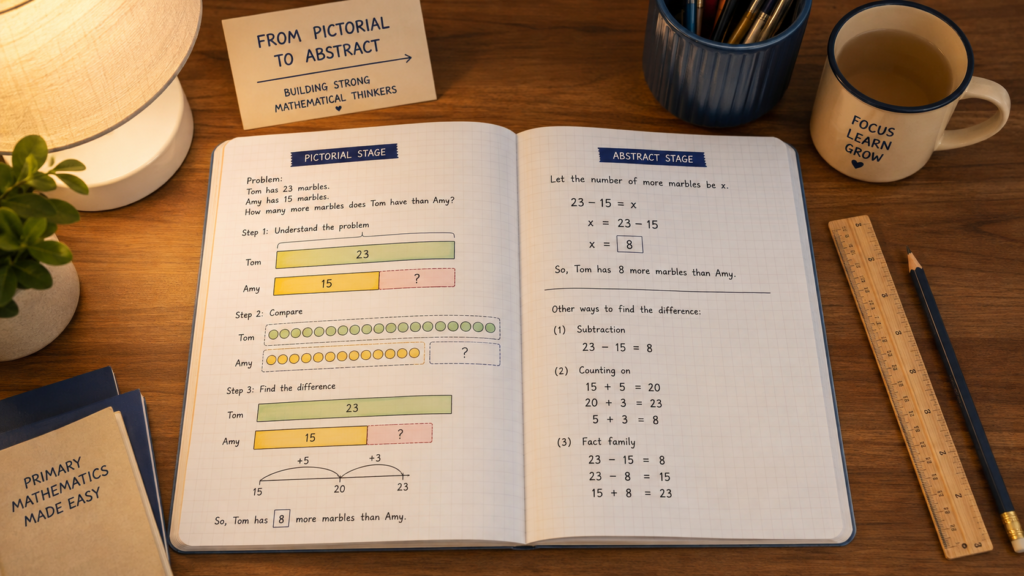 FROM PICTORIAL
TO ABSTRACT
BUILDING STRONG
MATHEMATICAL THINKERS
FOCUS
LEARN
GROW
PRIMARY
MATHEMATICS
MADE EASY
PICTORIAL STAGE
Problem:
Tom has 23 marbles.
Amy has 15 marbles.
How many more marbles does Tom have than Amy?
Step 1: Understand the problem
Tom 23
Amy 15 ?
Step 2: Compare
Tom
Amy ?
Step 3: Find the difference
Tom 23
Amy 15 ?
+5 +3
15 20 23
So, Tom has 8 more marbles than Amy.
ABSTRACT STAGE
Let the number of more marbles be x.
23 − 15 = x
x = 23 − 15
x = 8
So, Tom has 8 more marbles than Amy.
Other ways to find the difference:
(1) Subtraction
23 − 15 = 8
(2) Counting on
15 + 5 = 20
20 + 3 = 23
5 + 3 = 8
(3) Fact family
23 − 15 = 8
23 − 8 = 15
15 + 8 = 23